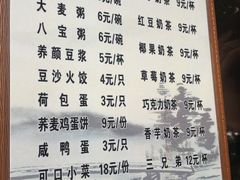 大麦粥 6元/碗
八宝粥 6元/碗
养颜豆浆 5元/杯
豆沙火饺 4元/只
荷包蛋 3元/只
荞麦鸡蛋饼 9元/份
咸鸭蛋 3元/只
可口小菜 18元/份
奶茶 9元/杯
红豆奶茶 9元/杯
椰果奶茶 9元/杯
草莓奶茶 9元/杯
巧克力奶茶 9元/杯
香芋奶茶 9元/杯
三兄弟 12元/杯